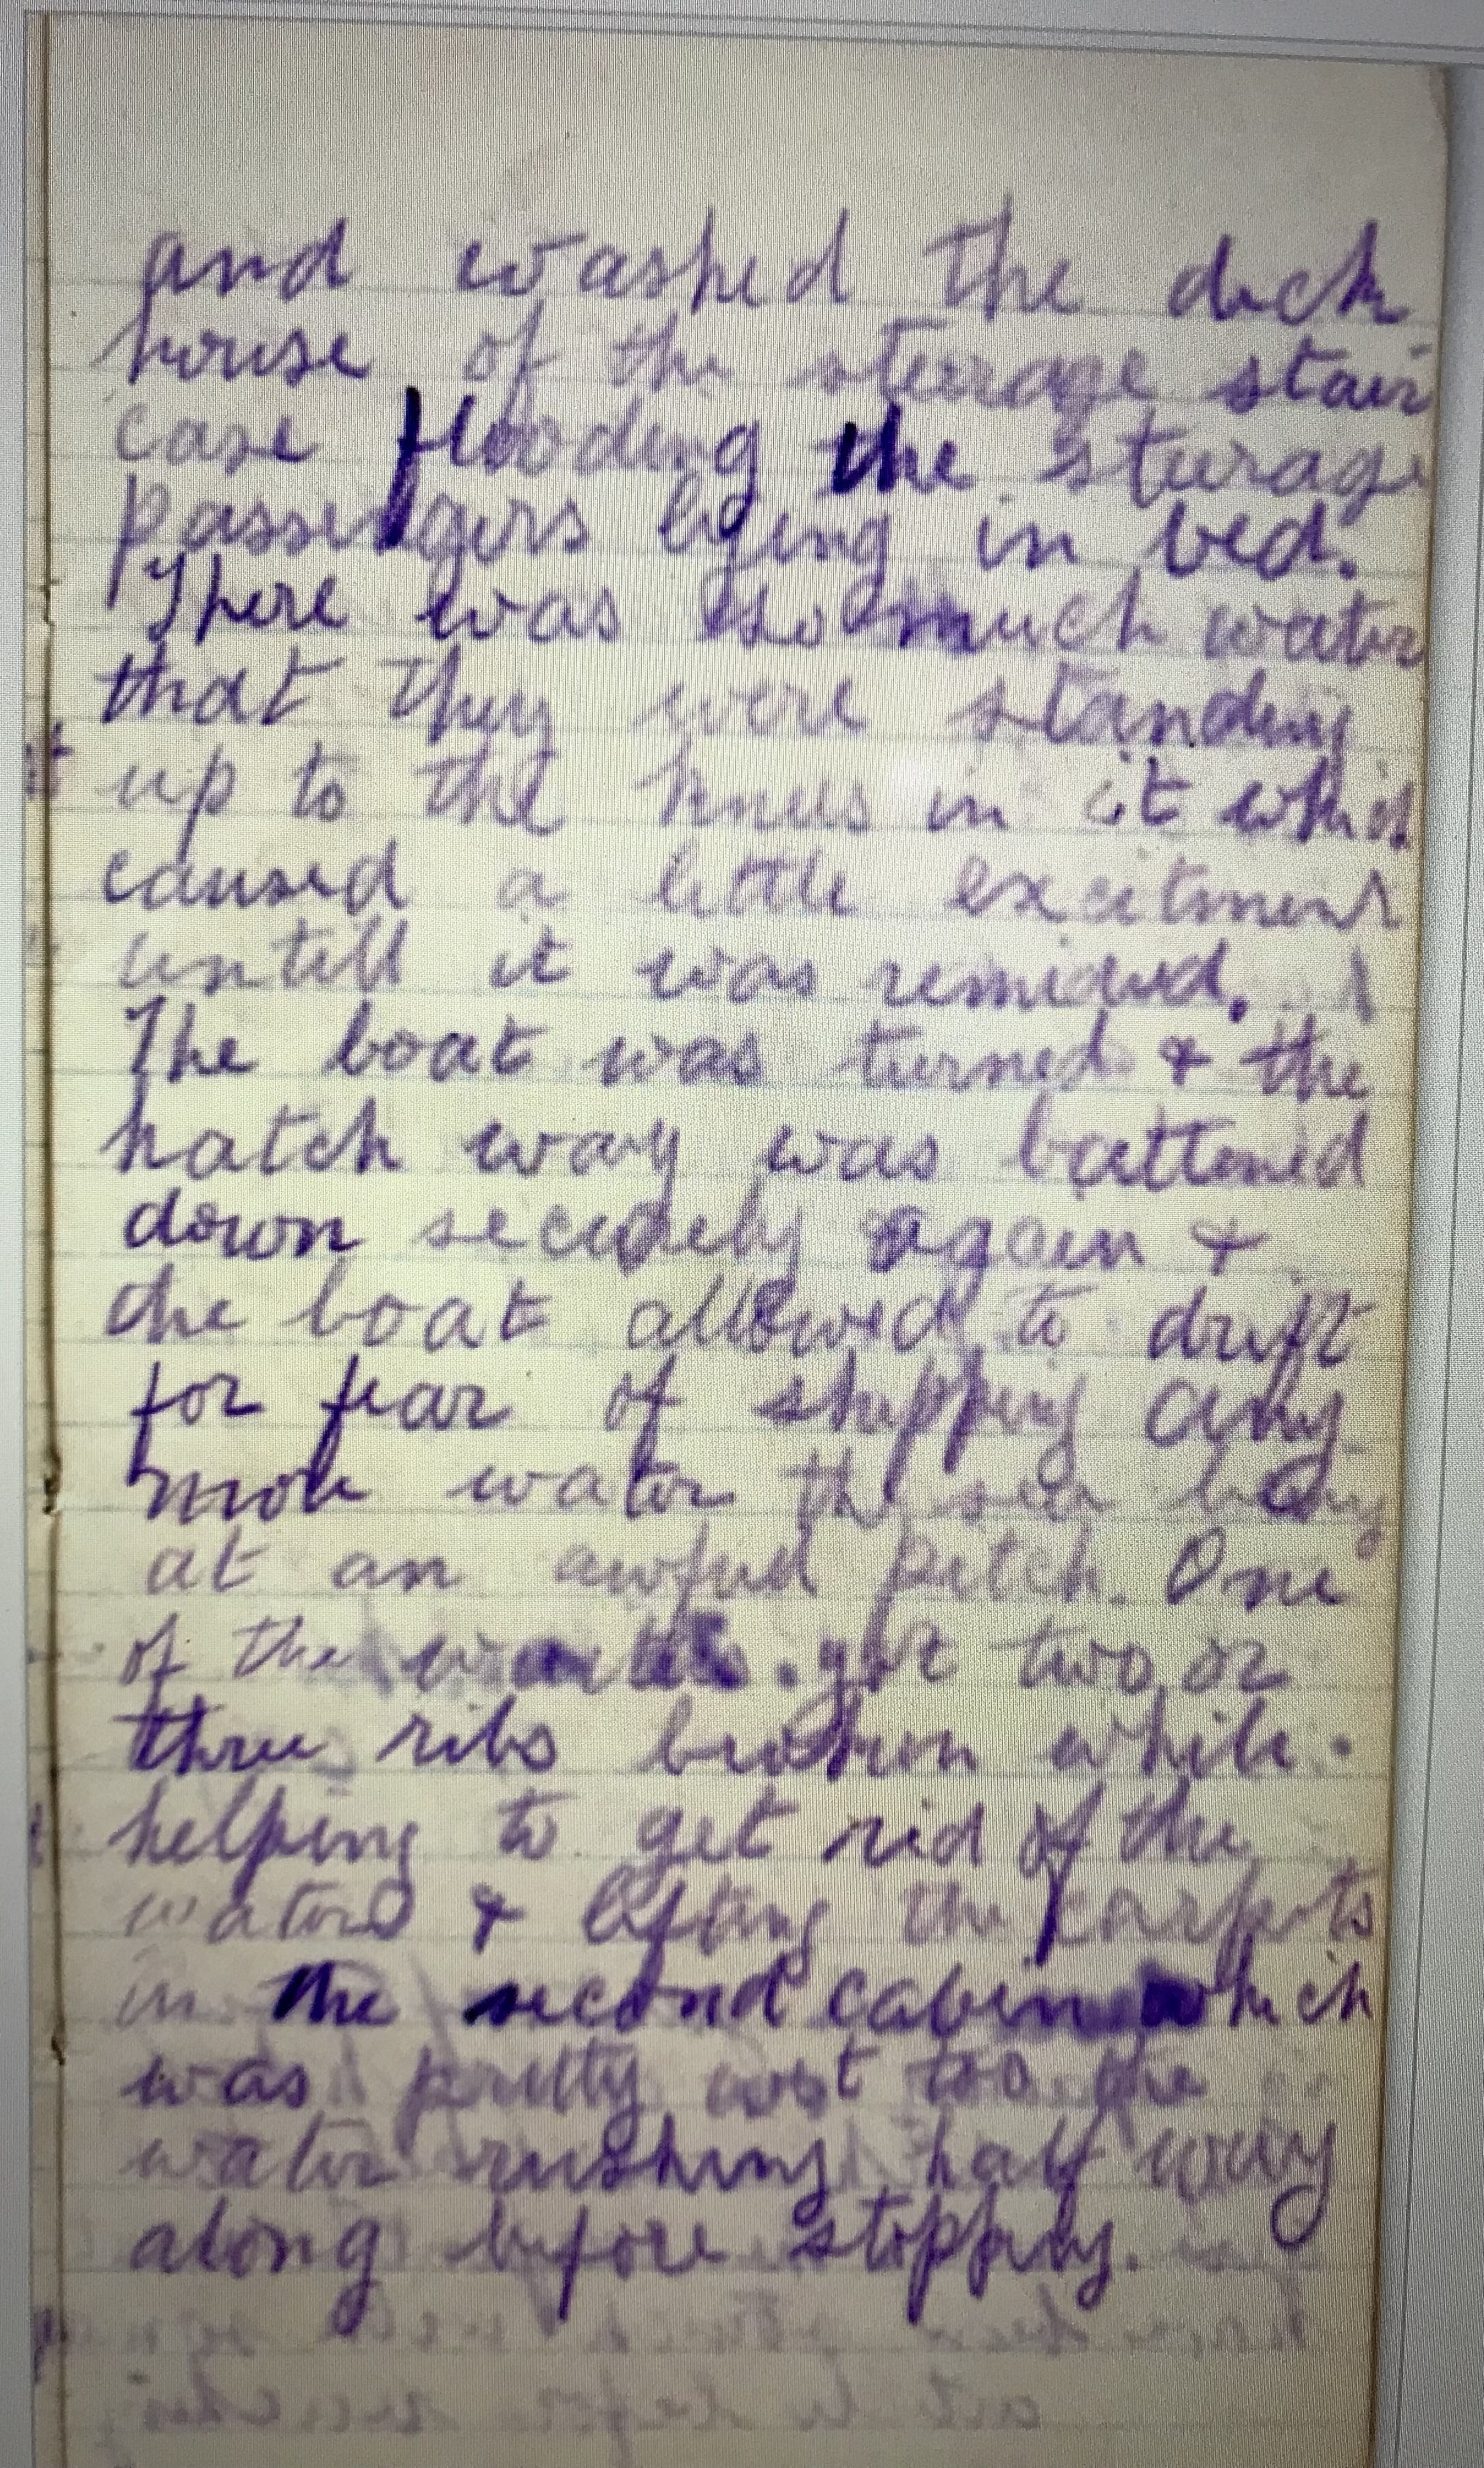 and washed the deck
house of the sturage stair
case flooding the sturage
passengers lying in bed.
There was so much water
that they were standing
up to the knees in it which
caused a little excitment
untill it was remided.
The boat was turned & the
hatch way was battened
down securely again &
the boat allowed to drift
for fear of shipping any
more water the sea being
at an awful pitch. One
of the got two or
three ribs brohen while
helping to get rid of the
water & lifting the carpets
in the second cabin which
was pretty wet too the
water rushing half way
along before stopping.